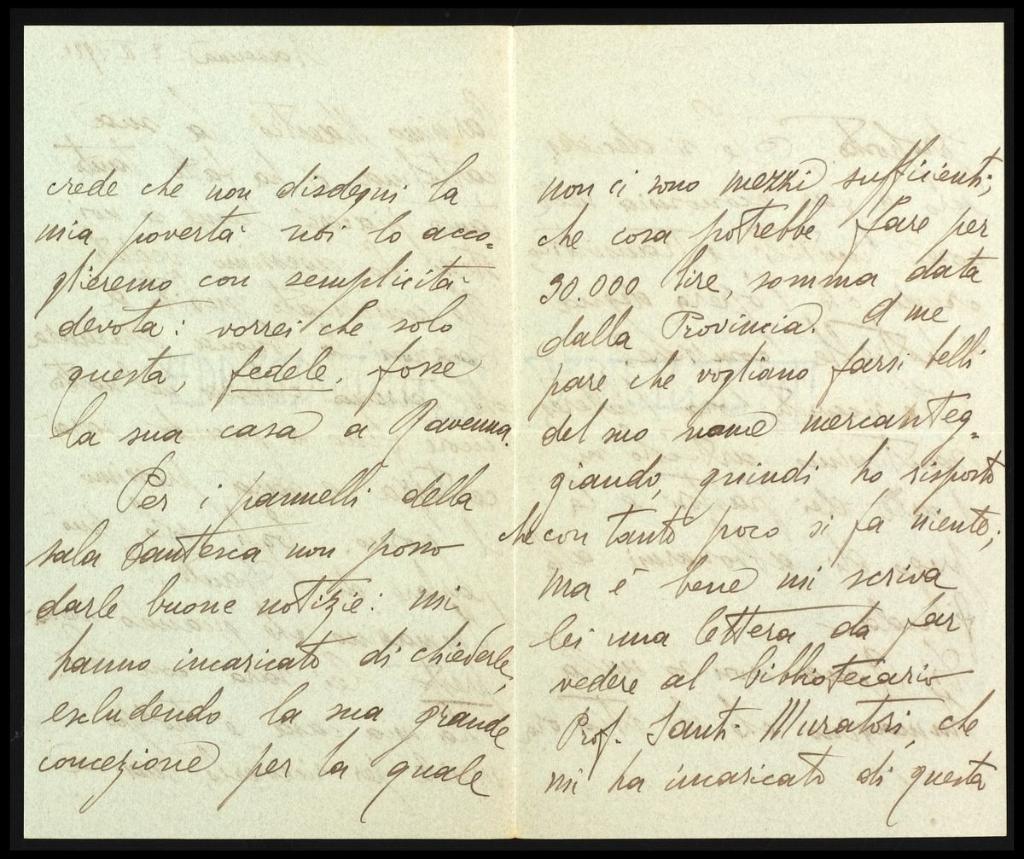 crede che non disdegni la
mia povertà noi lo acco=
glieremo con semplicità
devota: vorrei che solo
questa, fedele, fosse
la sua casa a Ravenna.
Per i pannelli della
sala dantesca non posso
darle buone notizie: mi
hanno incaricato di chiederle,
escludendo la sua grande
concezione per la quale
non ci sono mezzi sufficienti,
che cosa potrebbe fare per
30.000 lire, somma data
dalla Provincia. A me
pare che vogliano farsi belli
del suo nome mercanteg=
giando, quindi ho risposto
che con tanto poco si fa niente;
ma è bene mi scriva
lei una lettera da far
vedere al bibliotecario
Prof. Santi Muratori, che
mi ha incaricato di questa